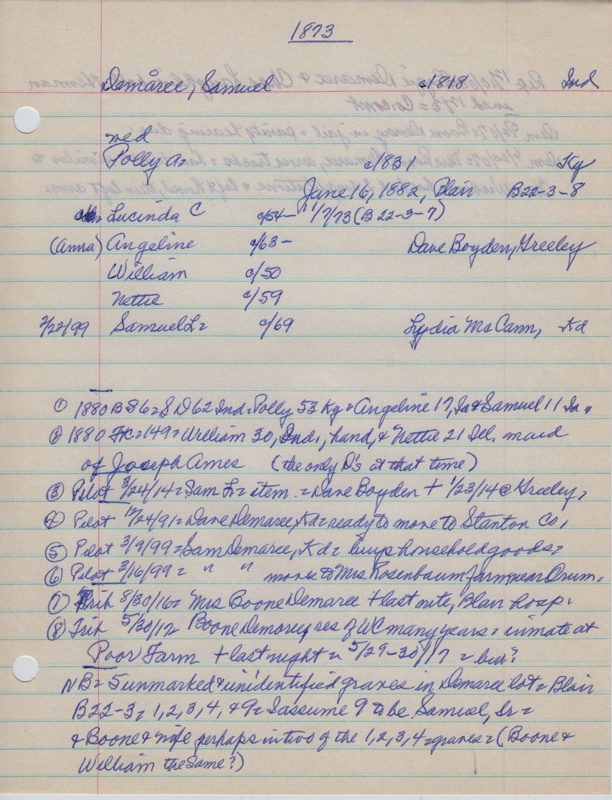 1873
Demaree, Samuel c/1818 Ind
med
Polly A= c/1831 Ky
June 16, 1882, Blair B22-3-8
Lucinda C c/54- 1/7/73 (B22-3-7)
(Anna) Angeline c/63- Dave Boyden, Greeley
William c/50
Nettie c/59
2/22/99 Samuel L= c/69 Lydia McCann, Kd
① 1880 B S62 Ind= Polly 53 Ky= Angeline 17, Ia & Samuel 11 Ia.
② 1880 149= William 30, Ind., hand, & Nettie 21 Ill. maid
of Joseph Ames (the only D's at that time)
③ Pilot 3/24/14= Sam L= item = Dave Boyden + 1/23/14 @ Greeley,
④ Pilot 12/24/91= Dave Demaree, Kd= ready to move to Stanton Co,
⑤ Pilot 3/9/99= Sam Demaree, Kd= buys household goods=
⑥ Pilot 3/16/99= " " moves to Mrs Rosenbaum farm near Orum.
⑦ Trib 8/30/16= Mrs Boone Demaree + last nite, Blair hosp.
⑧ Trib 5/30/17 Boone Demaree, res of WC many years= inmate at
Poor Farm + last night = 5/29-30/17 = bur?
NB= 5 unmarked & unidentified graves in Demaree lot= Blair
B22-3= 1,2,3,4, & 9= I assume 9 to be Samuel, Sr=
& Boone & wife perhaps in two of the 1,2,3,4= graves= (Boone &
William the same?)